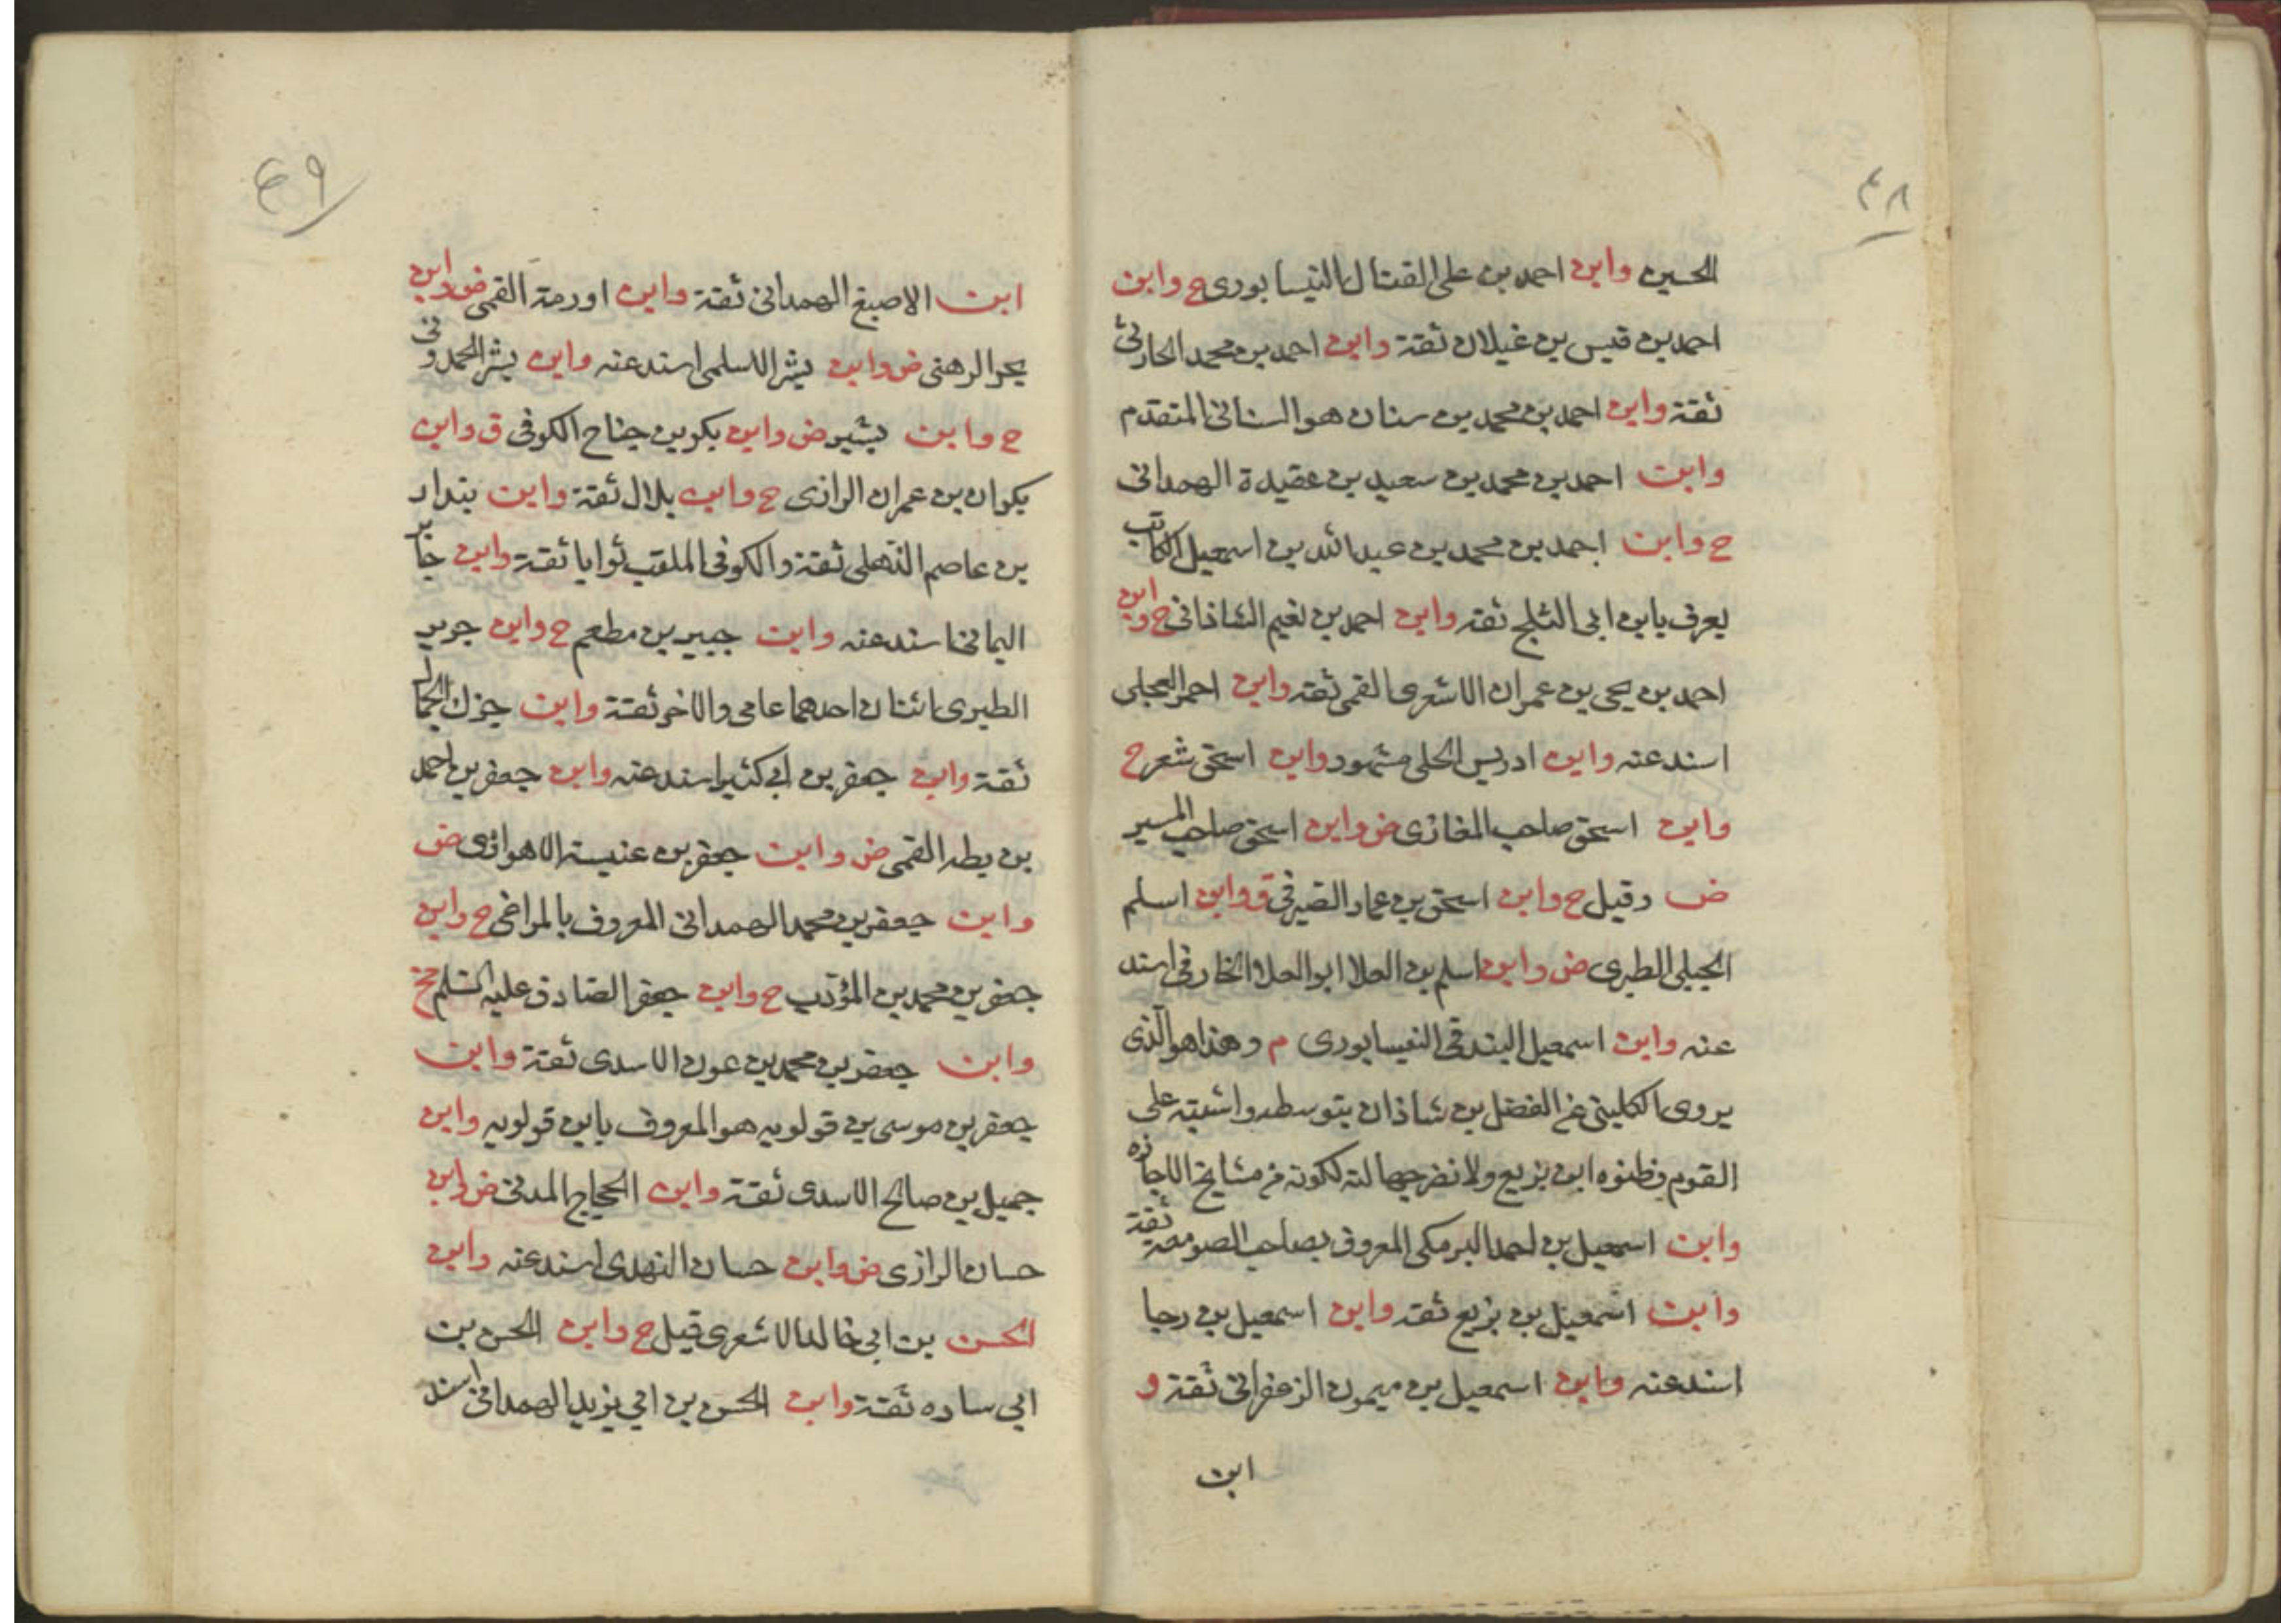 ٤٨
الحسين وابن احمد بن على الفتال النيسابورى ح وابن
احمد بن قيس بن غيلان ثقة وابن احمد بن محمد الحارثى
ثقة وابن احمد بن محمد بن سنان هو السنانى المتقدم
وابن احمد بن محمد بن سعيد بن عقيدة الهمدانى
ح وابن احمد بن محمد بن عبد الله بن اسمعيل الكاتب
يعرف بابن ابى الثلج ثقة وابن احمد بن نعيم الشاذانى ح وابن
احمد بن يحيى بن عمران الاشعرى القمى ثقة وابن احمر العجلى
اسند عنه وابن ادريس الحلى مشهور وابن اسحق شعر ح
وابن اسحق صاحب المغازى ض وابن اسحق صاحب السير
ض وقيل ح وابن اسحق بن عمار الصيرفى ق وابن اسلم
الجبلى الطبرى ض وابن اسلم بن العلا ابو العلا الخارفى اسند
عنه وابن اسمعيل البندقى النيسابورى م وهذا هو الذى
يروى الكلينى عن الفضل بن شاذان بتوسطه واشتبه على
القوم فظنوه ابن بزيع ولا نضر جهالته لكونه من مشايخ الاجازه
وابن اسمعيل بن احمد البرمكى المعروف بصاحب الصومعة ثقة
وابن اسمعيل بن بزيع ثقة وابن اسمعيل بن رجا
اسند عنه وابن اسمعيل بن ميمون الزعفرانى ثقة و
ابن
٤٩
ابن الاصبغ الهمدانى ثقة وابن اورمة القمى ض وابن
بحر الرهنى ض وابن بشر الاسلمى اسند عنه وابن بشر الحمدونى
ح وابن بشير ض وابن بكر بن جناح الكوفى ق وابن
بكران بن عمران الرازى ح وابن بلال ثقة وابن بندار
بن عاصم الذهلى ثقة والكوفى الملقب ثوابا ثقة وابن جابر
اليمانى اسند عنه وابن جبير بن مطعم ح وابن جرير
الطبرى اثنان احدهما عامى والاخر ثقة وابن جزك الجمال
ثقة وابن جعفر بن ابى كثير اسند عنه وابن جعفر بن احمد
بن بطه القمى ض وابن جعفر بن عنبسة الاهوازى ض
وابن جعفر بن محمد الهمدانى المعروف بالمراغى ح وابن
جعفر بن محمد بن المؤدب ح وابن جعفر الصادق عليه السلم ح
وابن جعفر بن محمد بن عون الاسدى ثقة وابن
جعفر بن موسى بن قولويه هو المعروف بابن قولويه وابن
جميل بن صالح الاسدى ثقة وابن الحجاج المدنى ض وابن
حسان الرازى ض وابن حسان النهدى اسند عنه وابن
الحسن بن ابى خالد الاشعرى قيل ح وابن الحسن بن
ابى ساره ثقة وابن الحسن بن ابى يزيد الهمدانى اسند